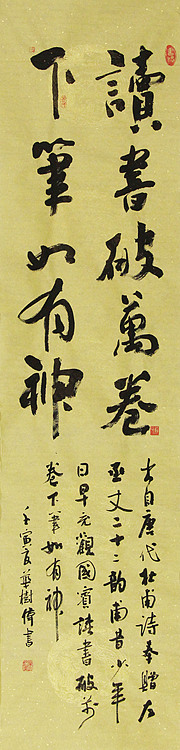 讀書破萬卷
下筆如有神
出自唐代杜甫詩奉贈左
丞丈二十二韻甫昔少年
日早充觀國賓讀書破萬
卷下筆如有神
壬寅夏樹偉書